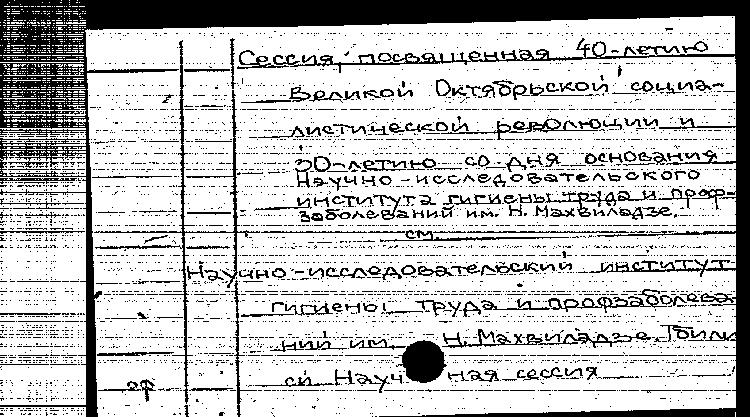 Сессия, посвященная 40-летию
Великой Октябрьской социа-
листической революции и
30-летию со дня основания
Научно-исследовательского
института гигиены труда и проф-
заболеваний им. Н. Махвиладзе.
см.
Научно-исследовательский институт
гигиены труда и профзаболева
ний им. Н. Махвиладзе. Тбили
си Научная сессия